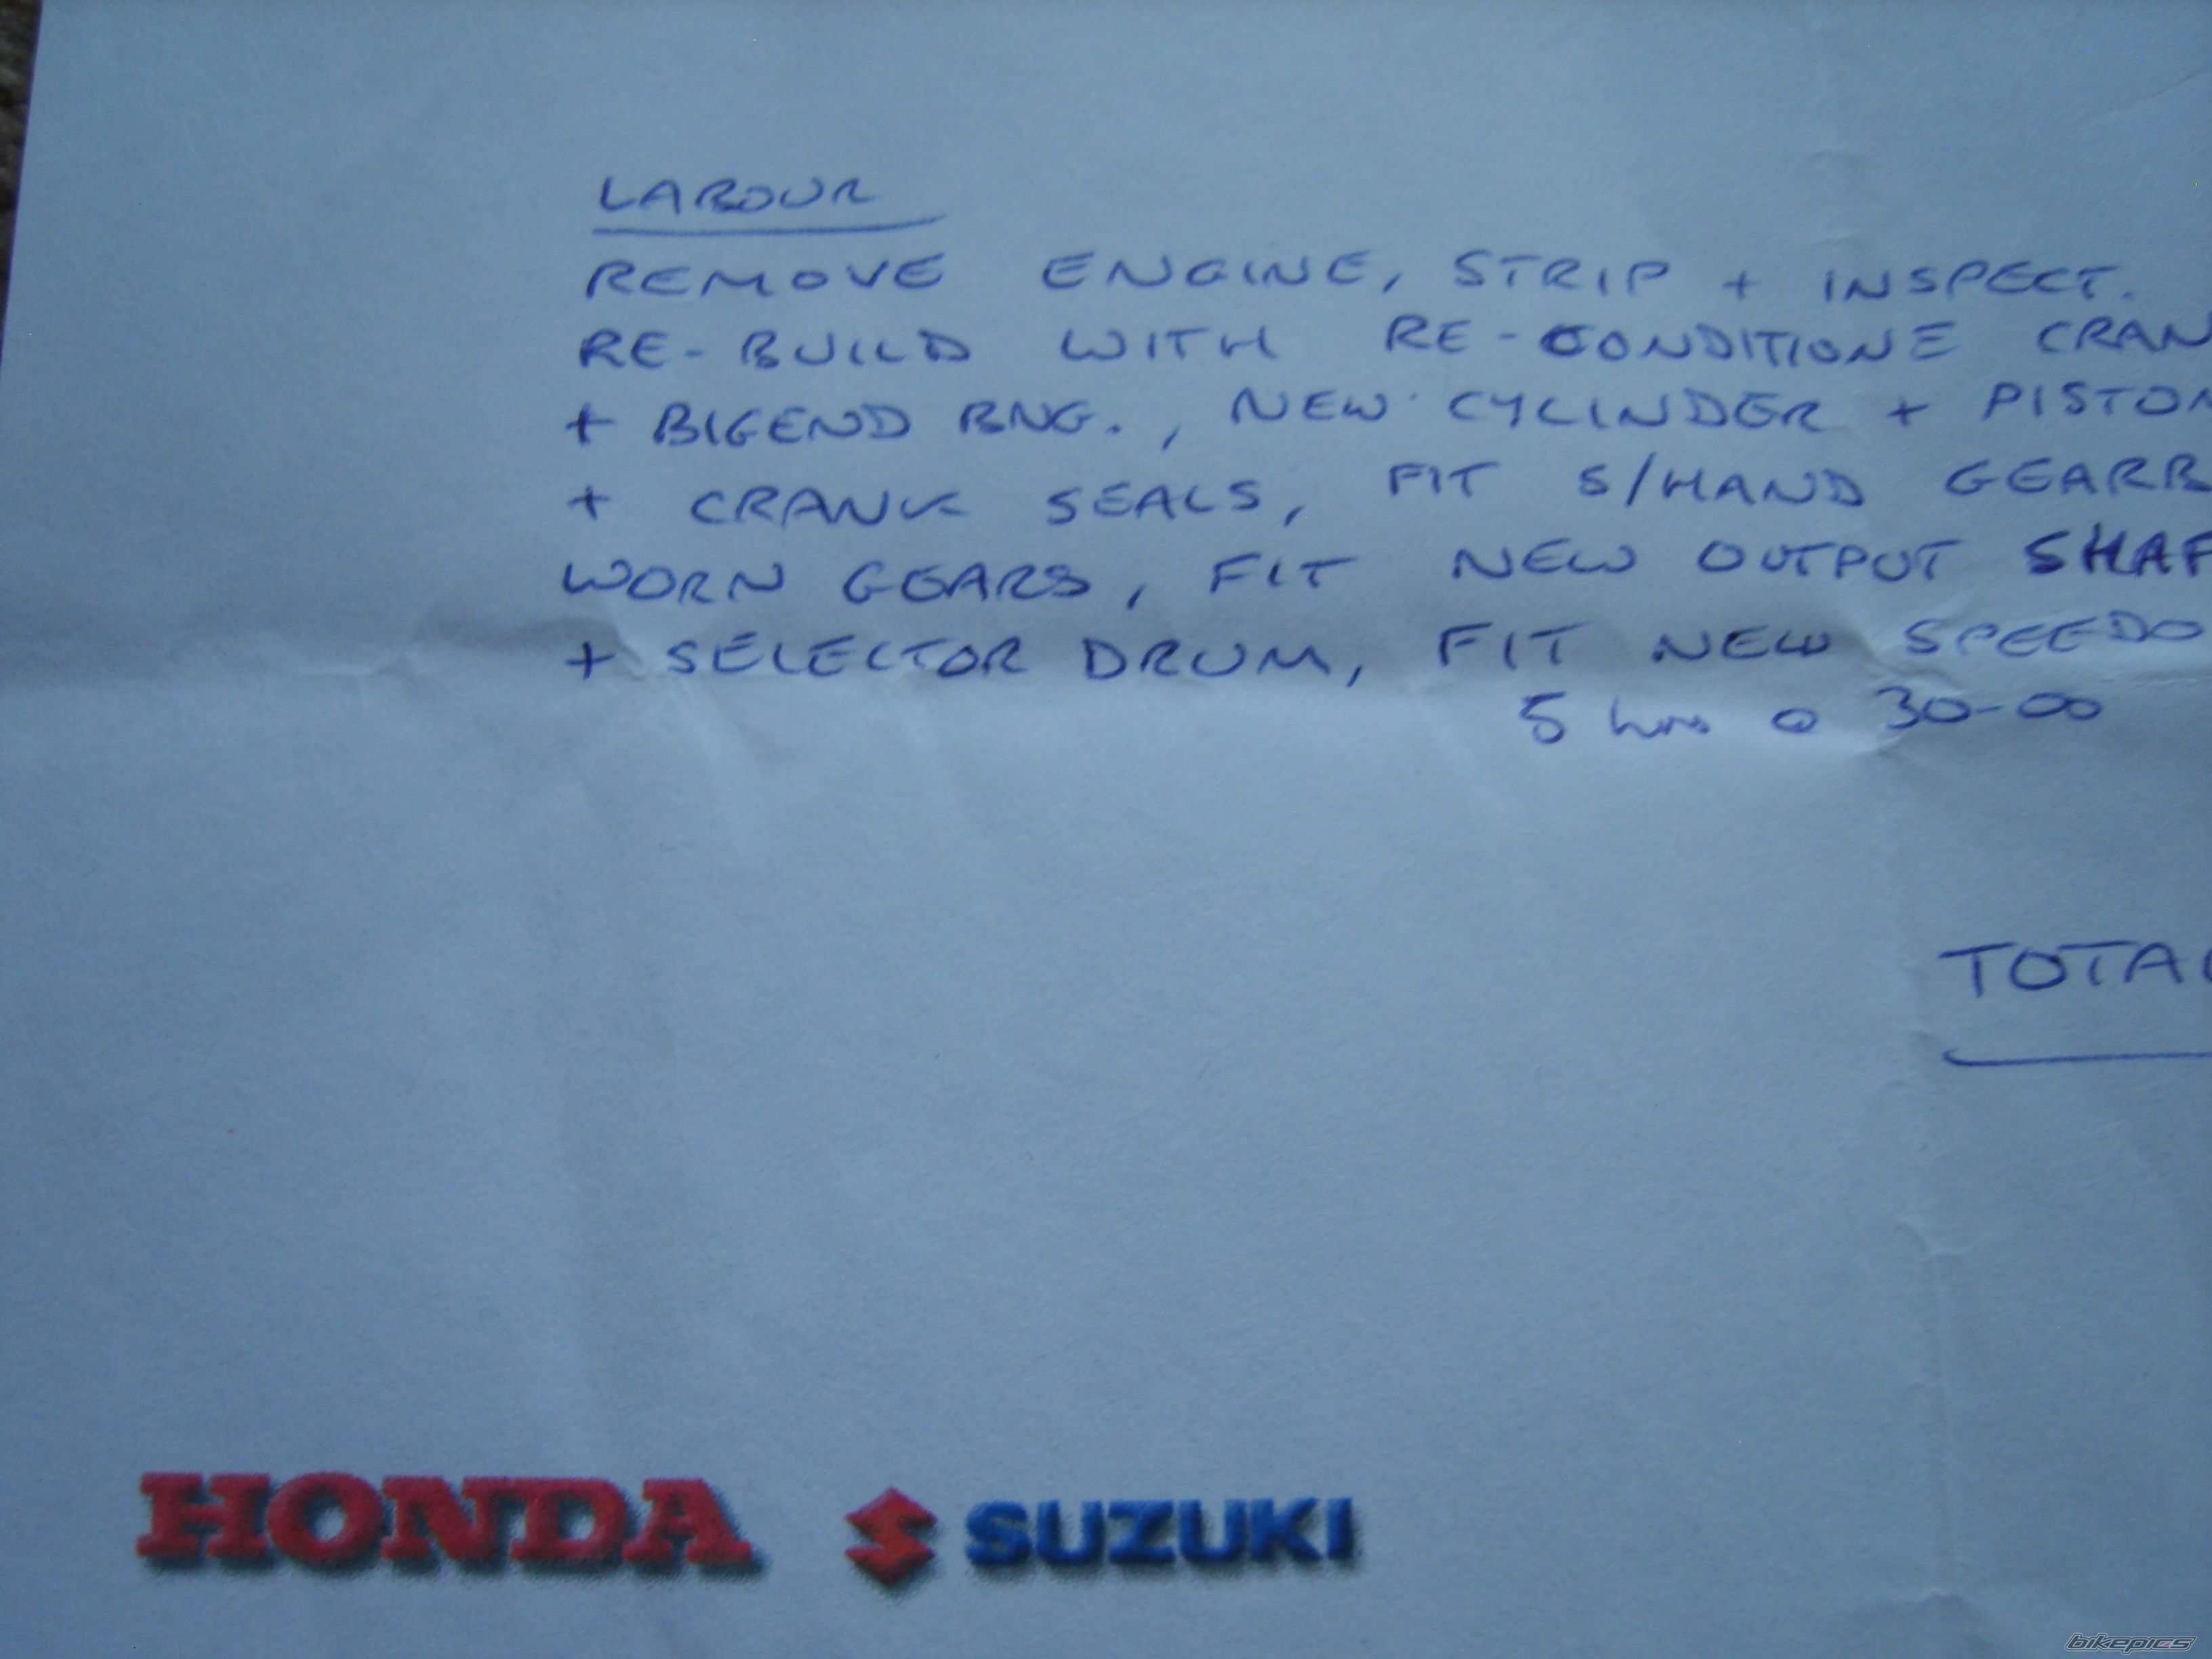 LABOUR
REMOVE ENGINE, STRIP + INSPECT.
RE-BUILD WITH RE-CONDITIONE CRAN
+ BIGEND BNG., NEW CYLINDER + PISTON
+ CRANK SEALS, FIT S/HAND GEARB
WORN GEARS, FIT NEW OUTPUT SHAF
+ SELECTOR DRUM, FIT NEW SPEEDO
5 hrs @ 30-00
TOTAL
HONDA SUZUKI
bikepics